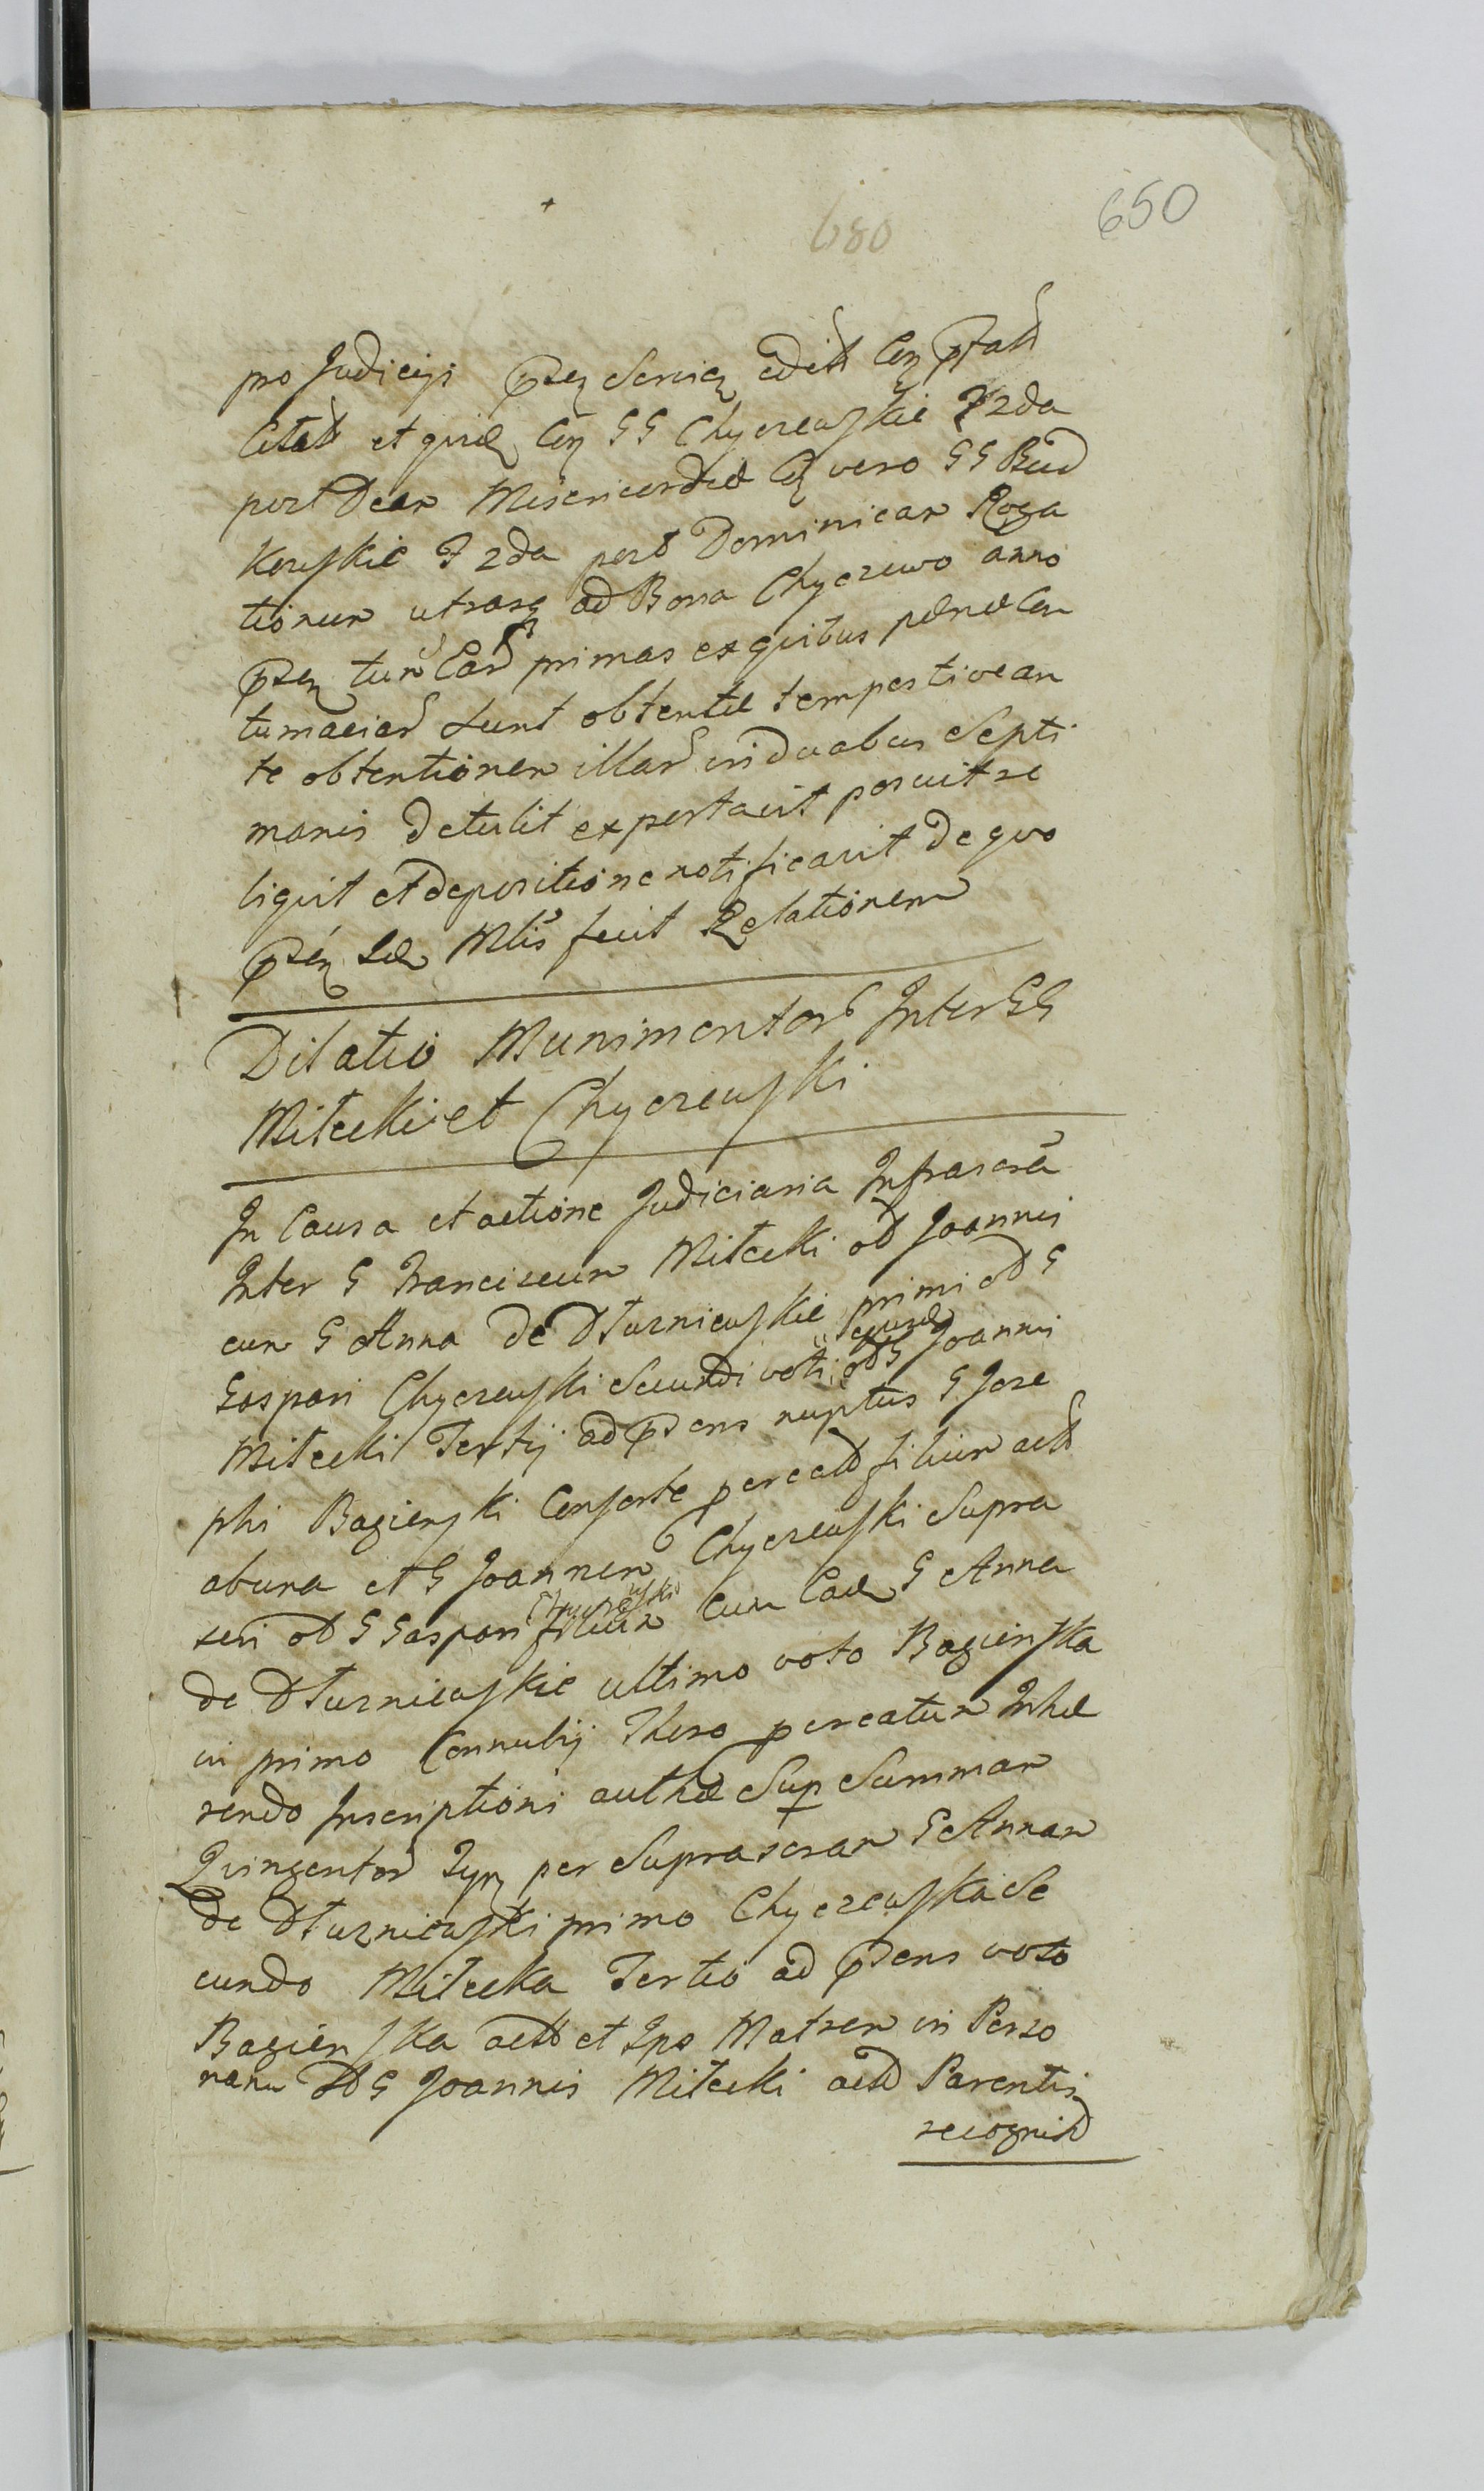 650
680
pro Judicijs pntẽ Servien edita Con ptatt
Citatt et quid Con GG Chyczewskie F 2da
post Dcam Misericordiæ Con vero GG Bud
kowskie F 2da post Dominicam Roga
tionum utrasq ad Bona Chyczewo anno
pnten tum Ear primas ex quibus pænæ Con
tumaciar sunt obtentæ tempestive an
te obtentionem illar in duabus Septi
manis detulit exportavit posuit re
liquit et depositione notificavit de quo
pnten Sæ Mtis fecit Relationem
Dilatio Munimentor Inter GG
Mitecki et Chyczewski
In Causa et actione Judiciaria Infrascra
Inter G Franciscum Mitecki olim Joannis
cum G Anna de Turnicuskie primi olim G
Gaspari Chyczewski Secundi voti olim G Joannis
Mitecki Tertij ad pdens nuptus G Jose
phi Bagienski Consorte percatt filium actt
abuna et G Joannem Chyczewski Supra
seri olim G Gaspari Chyczewski filium cum Ead G Anna
de Turnicuskie ultimo voto Bagienska
in primo Connubij Thoro percatum Inhæ
rendo Inscriptioni authæ Sup Summam
Quingentor per Suprascram G Annam
de Turnicuski primo Chyczewska Se
cundo Mitecka Tertio ad pdens voto
Bagienska actt et Ips Matrem in Perso
nam olim G Joannis Mitecki actt Parentis
recognitt